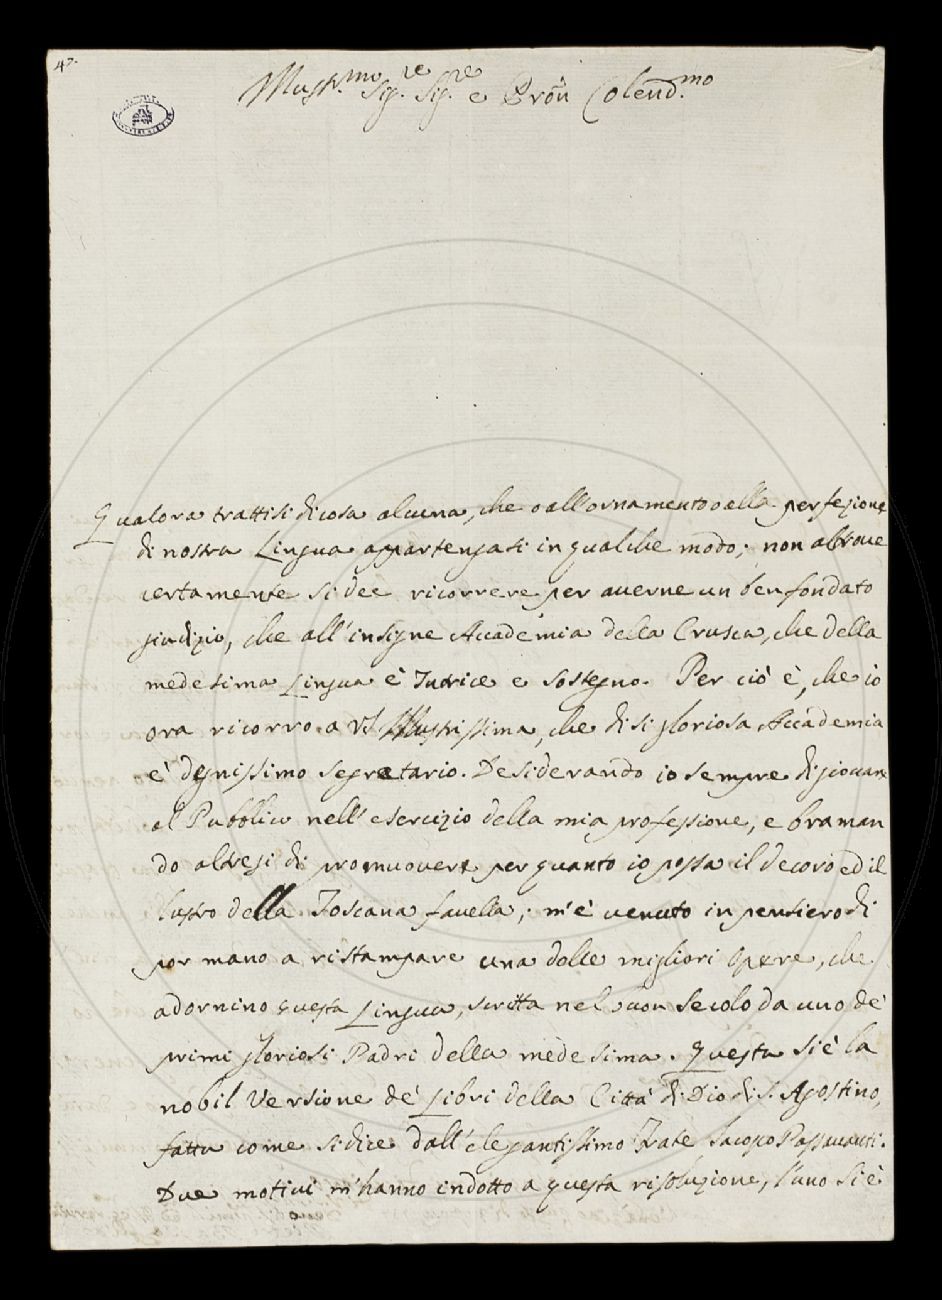 47.
Illustr.mo Sig.re Sig.re e Pron Colend.mo
Qualora trattisi di cosa alcuna, che o all'ornamento o alla perfezione
di nostra Lingua appartengasi in qualche modo; non altrove
certamente si dee ricorrere per averne un ben fondato
giudizio, che all'insigne Accademia della Crusca, che della
medesima Lingua è Iudice e sostegno. Per ciò è, che io
ora ricorro a VS Illustrissima, che di sì gloriosa Accademia
è degnissimo segretario. Desiderando io sempre di giovare
al Pubblico nell'esercizio della mia professione, e braman
do altresì di promuovere per quanto io possa il decoro ed il
lustro della Toscana favella; m'è venuto in pensiero di
por mano a ristampare una delle migliori Opere, che
adornino questa Lingua, scritta nel buon secolo da uno de'
primi gloriosi Padri della medesima. Questa si è la
nobil Versione de' Libri della Città di Dio di S. Agostino,
fatta come si dice dall'elegantissimo Frate Jacopo Passavanti.
Due motivi m'hanno indotto a questa risoluzione, l'uno si è